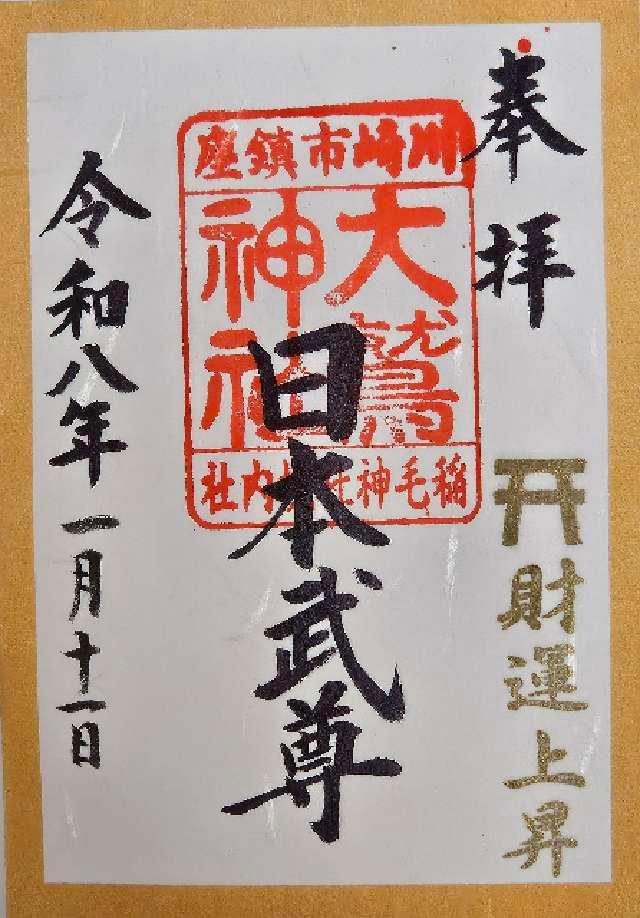 奉拝
財運上昇
川崎市鎮座
大鷲
神社
稲毛神社境内社
日本武尊
令和八年一月十一日